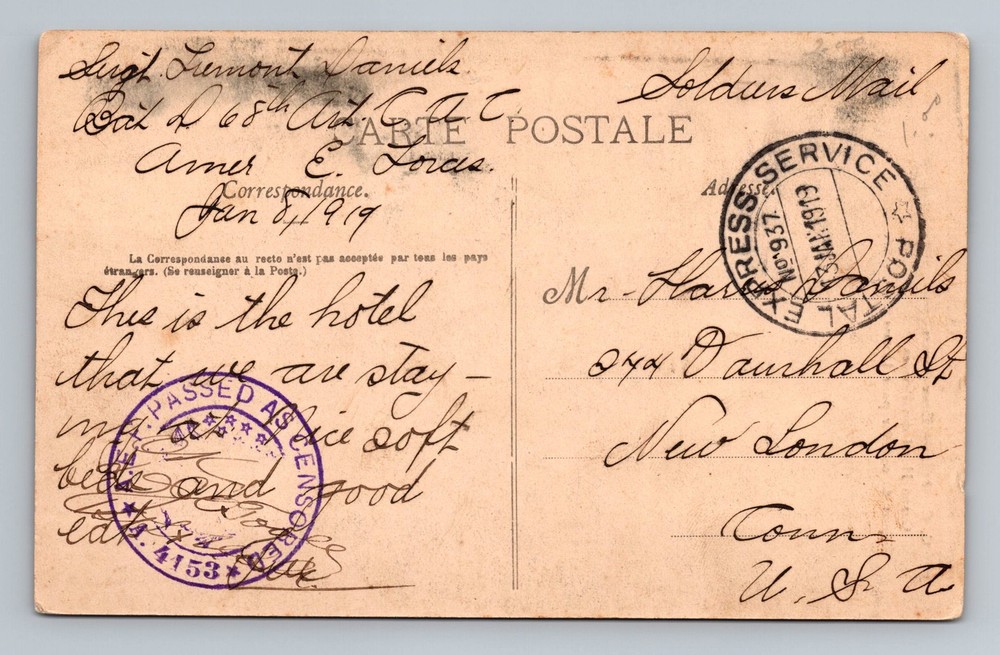 Sergt. Lumont Daniels
Bat D 68th Art C A C
Amer E. Forces.
Jan 8, 1919
Soldiers Mail
CARTE POSTALE
Correspondance.
Adresse.
La Correspondance au recto n'est pas acceptée par tous les pays
étrangers. (Se renseigner à la Poste.)
This is the hotel
that we are stay-
ing at. Nice soft
beds and good
eats
A.E.F. PASSED AS CENSORED
A. 4153
POSTAL EXPRESS SERVICE
No. 937
JAN 1919
Mr. Harris Daniels
244 Vauxhall St
New London
Conn
U. S. A